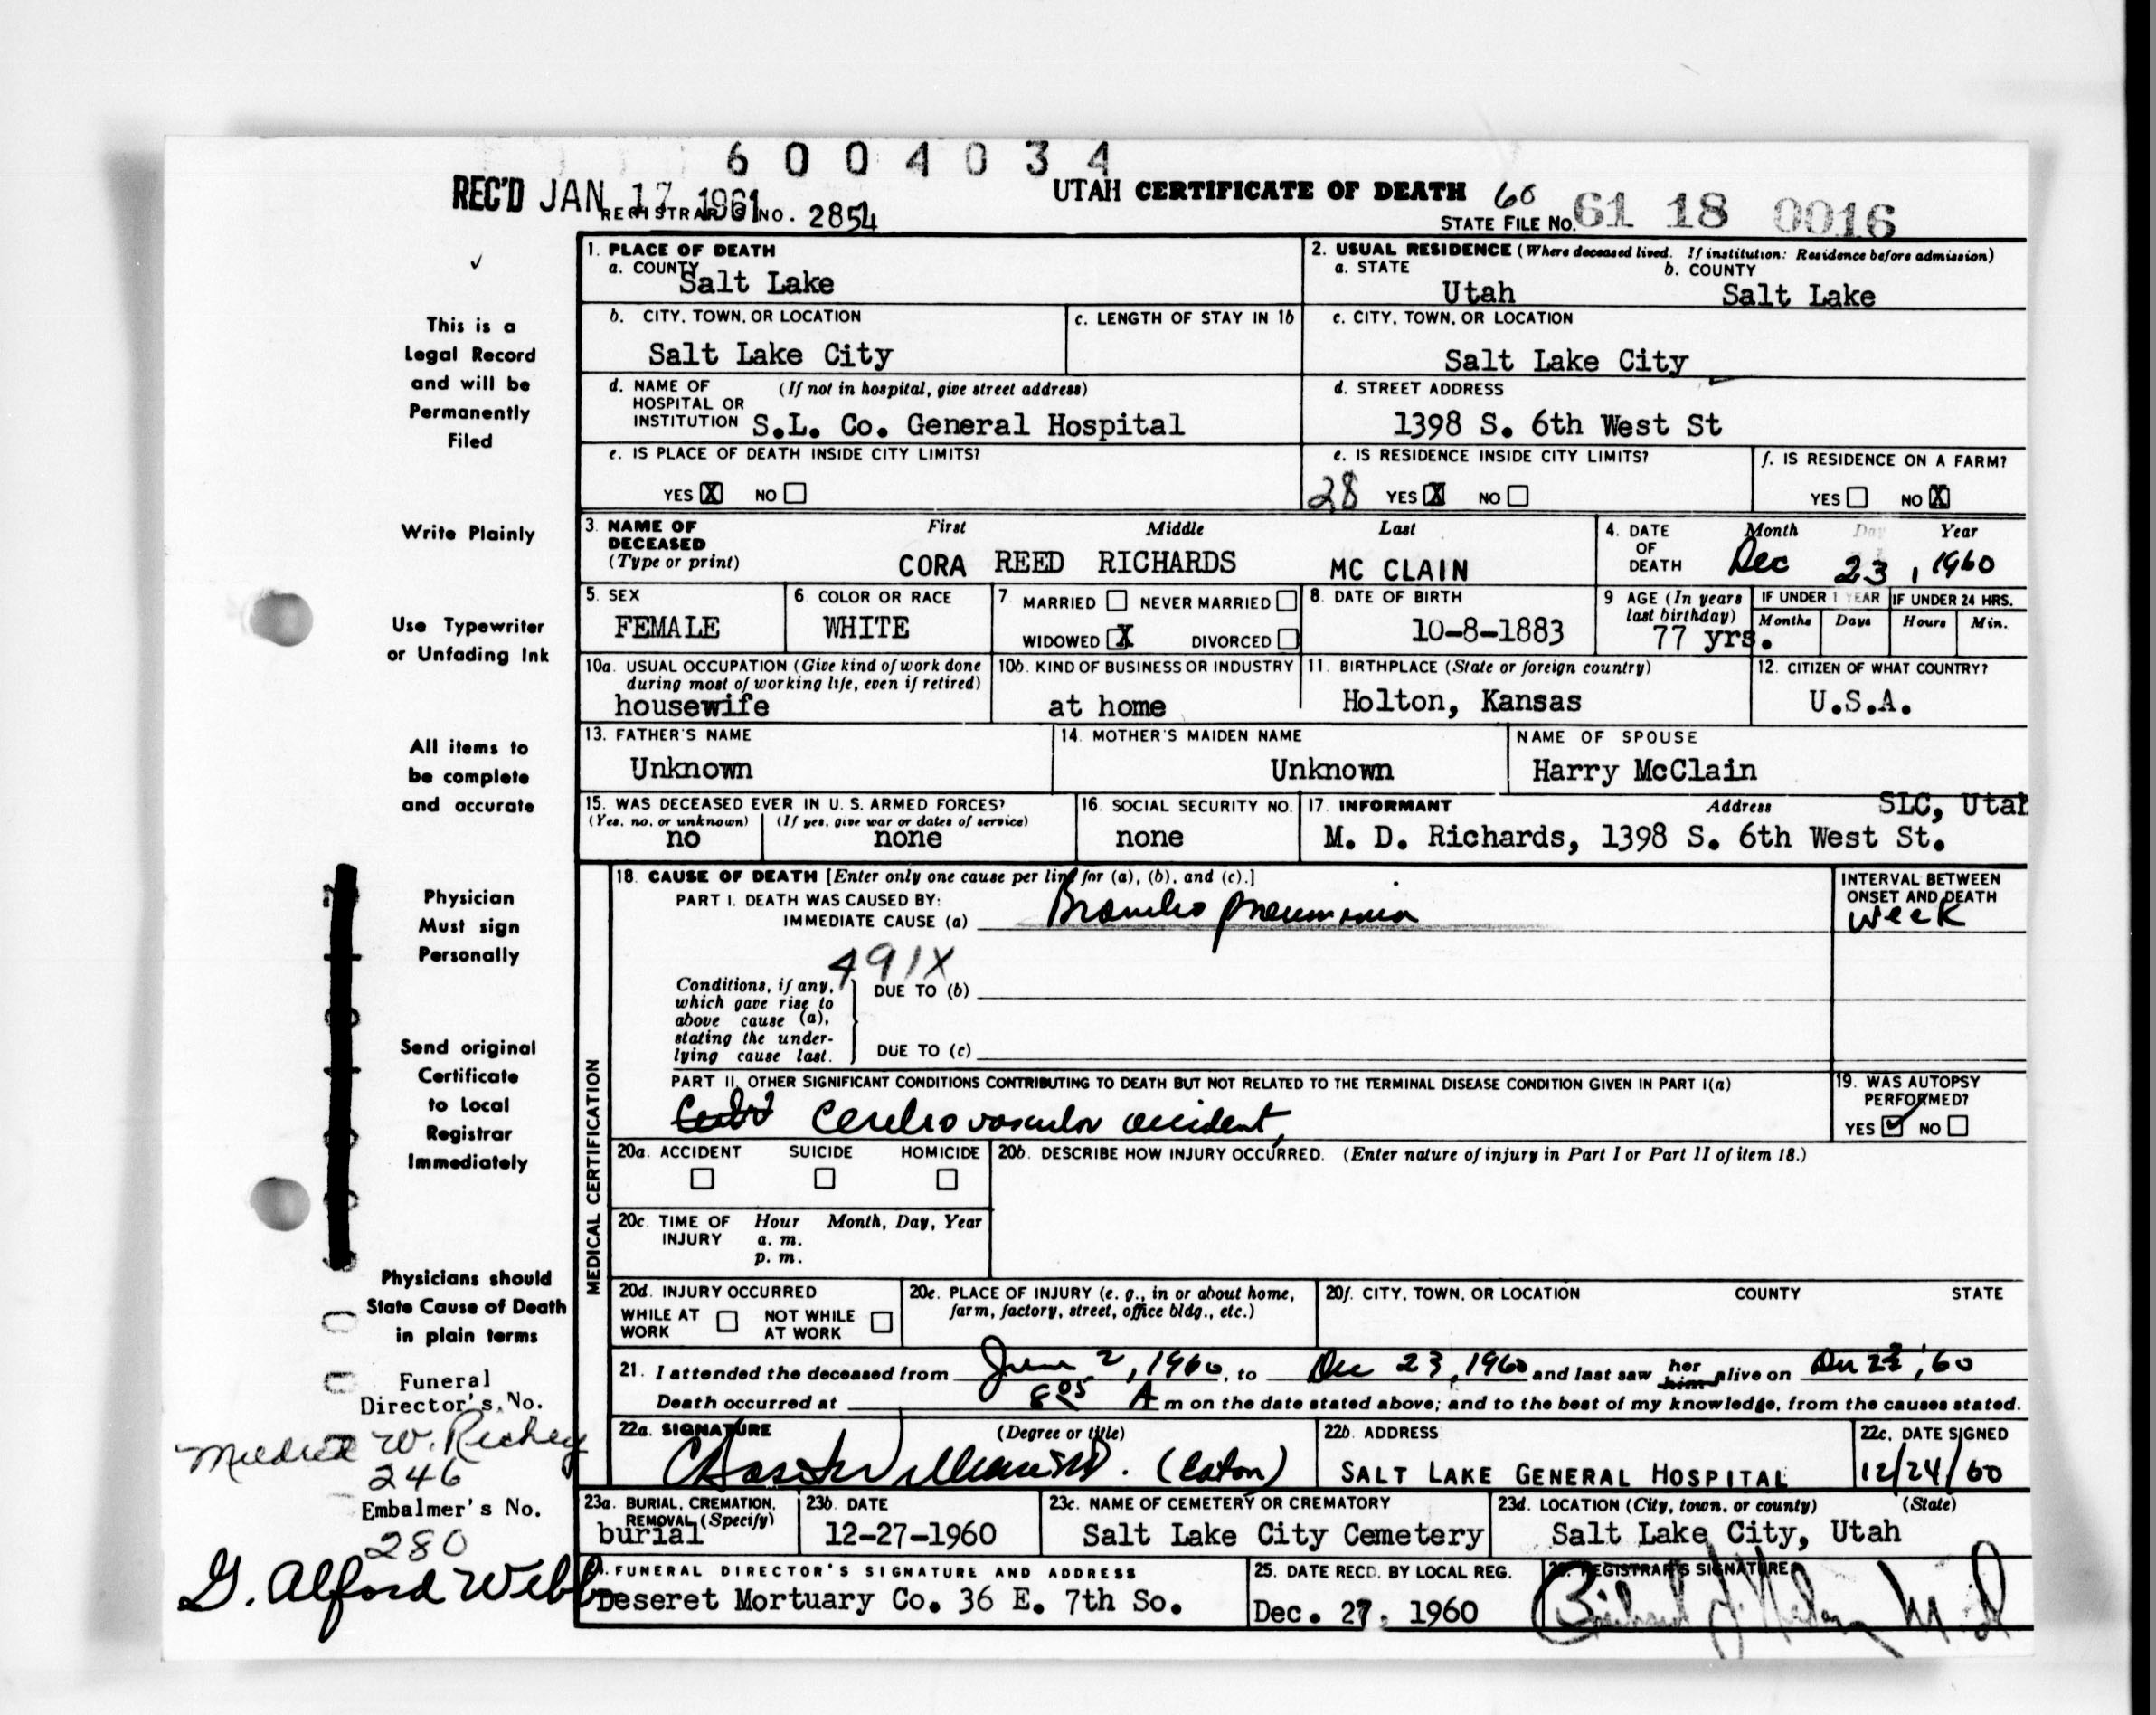 6 0 0 4 0 3 4
REC'D JAN 17 1961 REGISTRAR'S NO. 2854
UTAH CERTIFICATE OF DEATH 60
STATE FILE NO. 61 18 0016
1. PLACE OF DEATH
a. COUNTY
Salt Lake
2. USUAL RESIDENCE (Where deceased lived. If institution: Residence before admission)
a. STATE b. COUNTY
Utah Salt Lake
b. CITY, TOWN, OR LOCATION
Salt Lake City
c. LENGTH OF STAY IN 1b
c. CITY, TOWN, OR LOCATION
Salt Lake City
d. NAME OF (If not in hospital, give street address)
HOSPITAL OR
INSTITUTION S.L. Co. General Hospital
d. STREET ADDRESS
1398 S. 6th West St
e. IS PLACE OF DEATH INSIDE CITY LIMITS?
YES X NO
e. IS RESIDENCE INSIDE CITY LIMITS?
28 YES X NO
f. IS RESIDENCE ON A FARM?
YES NO X
3. NAME OF DECEASED (Type or print)
First Middle Last
CORA REED RICHARDS MC CLAIN
4. DATE OF DEATH
Month Day Year
Dec 23, 1960
5. SEX
FEMALE
6. COLOR OR RACE
WHITE
7. MARRIED NEVER MARRIED
WIDOWED X DIVORCED
8. DATE OF BIRTH
10-8-1883
9 AGE (In years last birthday)
77 yrs.
IF UNDER 1 YEAR IF UNDER 24 HRS.
Months Days Hours Min.
10a. USUAL OCCUPATION (Give kind of work done
during most of working life, even if retired)
housewife
10b. KIND OF BUSINESS OR INDUSTRY
at home
11. BIRTHPLACE (State or foreign country)
Holton, Kansas
12. CITIZEN OF WHAT COUNTRY?
U.S.A.
13. FATHER'S NAME
Unknown
14. MOTHER'S MAIDEN NAME
Unknown
NAME OF SPOUSE
Harry McClain
15. WAS DECEASED EVER IN U. S. ARMED FORCES?
(Yes, no, or unknown) (If yes, give war or dates of service)
no none
16. SOCIAL SECURITY NO.
none
17. INFORMANT Address SLC, Utah
M. D. Richards, 1398 S. 6th West St.
MEDICAL CERTIFICATION
18. CAUSE OF DEATH [Enter only one cause per line for (a), (b), and (c).]
PART I. DEATH WAS CAUSED BY:
IMMEDIATE CAUSE (a) Broncho pneumonia
INTERVAL BETWEEN
ONSET AND DEATH
week
491X
Conditions, if any,
which gave rise to
above cause (a),
stating the under-
lying cause last.
DUE TO (b)
DUE TO (c)
PART II. OTHER SIGNIFICANT CONDITIONS CONTRIBUTING TO DEATH BUT NOT RELATED TO THE TERMINAL DISEASE CONDITION GIVEN IN PART I(a)
Cerebro vascular accident,
19. WAS AUTOPSY
PERFORMED?
YES ✓ NO
20a. ACCIDENT SUICIDE HOMICIDE
20b. DESCRIBE HOW INJURY OCCURRED. (Enter nature of injury in Part I or Part II of item 18.)
20c. TIME OF INJURY
Hour Month, Day, Year
a. m.
p. m.
20d. INJURY OCCURRED
WHILE AT WORK NOT WHILE AT WORK
20e. PLACE OF INJURY (e. g., in or about home,
farm, factory, street, office bldg., etc.)
20f. CITY, TOWN, OR LOCATION COUNTY STATE
21. I attended the deceased from June 2, 1960, to Dec 23, 1960 and last saw her him alive on Dec 23, 60
Death occurred at 8 05 A m on the date stated above; and to the best of my knowledge, from the causes stated.
22a. SIGNATURE (Degree or title)
(Eaton)
22b. ADDRESS
SALT LAKE GENERAL HOSPITAL
22c. DATE SIGNED
12/24/60
23a. BURIAL, CREMATION,
REMOVAL (Specify)
burial
23b. DATE
12-27-1960
23c. NAME OF CEMETERY OR CREMATORY
Salt Lake City Cemetery
23d. LOCATION (City, town, or county) (State)
Salt Lake City, Utah
FUNERAL DIRECTOR'S SIGNATURE AND ADDRESS
Deseret Mortuary Co. 36 E. 7th So.
25. DATE RECD. BY LOCAL REG.
Dec. 27, 1960
26. REGISTRAR'S SIGNATURE
This is a
Legal Record
and will be
Permanently
Filed
Write Plainly
Use Typewriter
or Unfading Ink
All items to
be complete
and accurate
Physician
Must sign
Personally
Send original
Certificate
to Local
Registrar
Immediately
Physicians should
State Cause of Death
in plain terms
Funeral
Director's No.
Mildred W. Richey
246
Embalmer's No.
280
G. Alford Webb